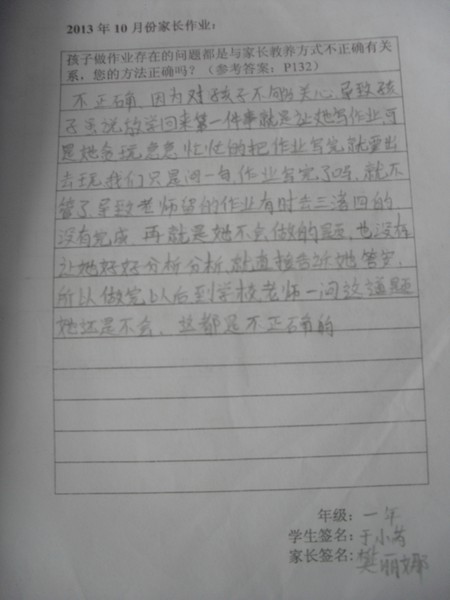 2013年10月份家长作业：
孩子做作业存在的问题都是与家长教养方式不正确有关
系，您的方法正确吗？（参考答案：P132）
不正确，因为对孩子不够关心.导致孩
子 放学回来第一件事就是让她写作业可
是她贪玩急急忙忙的把作业写完就要出
去玩我们只是问一句作业写完了吗，就不
管了.导致老师留的作业有时丢三落四的
没有完成，再就是她不会做的题，也没有
让她好好分析分析，就直接告诉她答案，
所以做完以后到学校老师一问这道题
她还是不会，这都是不正确的
年级：一年
学生签名：于小
家长签名：樊丽娜